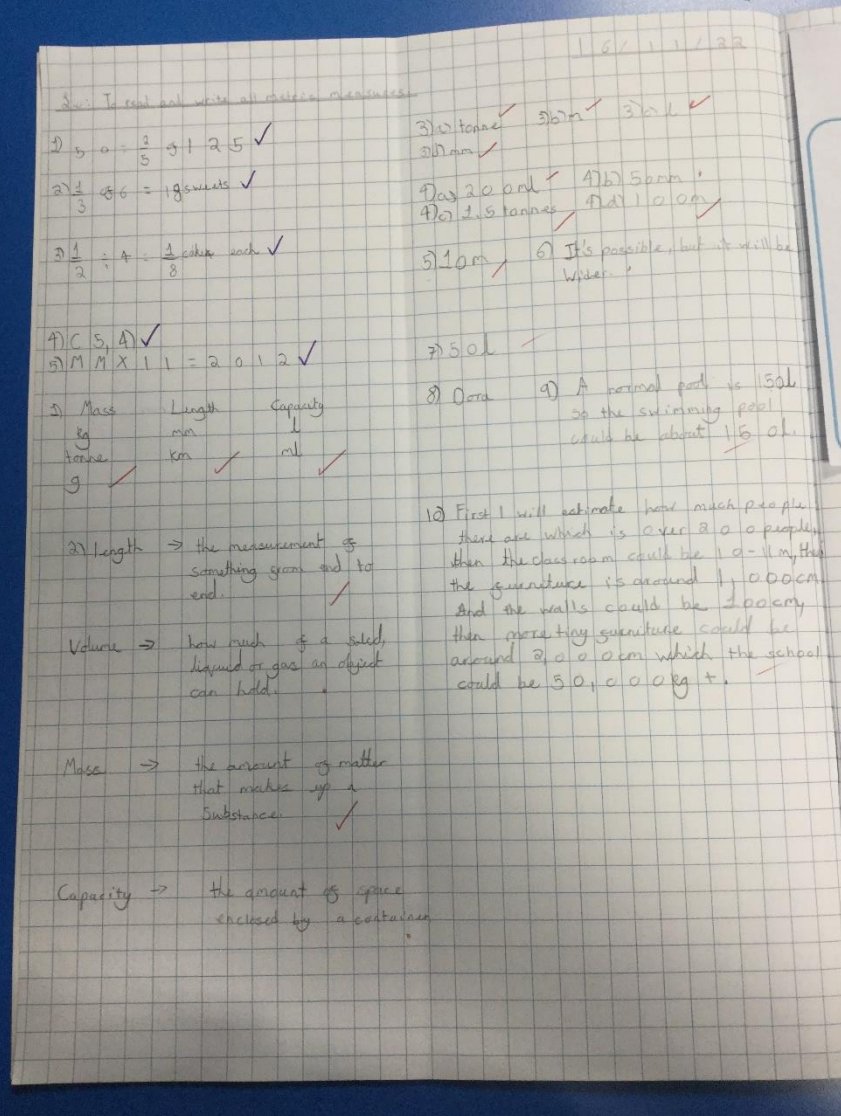 16/11/22
L.I: To read and write all metric measures.
1) 50 = 2/5 of 125
2) 1/3 of 6 = 18 sweets
3) 1/2 ÷ 4 = 1/8 cake each
4) (5, 4)
5) MMX11 = 2012
1) Mass Length Capacity
kg mm l
tonne km ml
g
2) Length → the measurement of
something from end to
end.
Volume → how much of a solid,
liquid or gas an object
can hold.
Mass → the amount of matter
that makes up a
substance.
Capacity → the amount of space
enclosed by a container.
3)a) tonne 3)b) m 3)c) L
3)d) mm
4)a) 200ml 4)b) 50mm
4)c) 1.5 tonnes 4)d) 100m
5) 10m 6) It's possible, but it will be
wider.
7) 50l
8) Dora 9) A normal pool is 150l
so the swimming pool
could be about 150l.
10) First I will estimate how much people
there are which is over 200 people,
then the classroom could be 10-11m, then
the furniture is around 1,000cm
And the walls could be 100cm,
then more tiny furniture could be
around 2,000cm which the school
could be 50,000kg +.